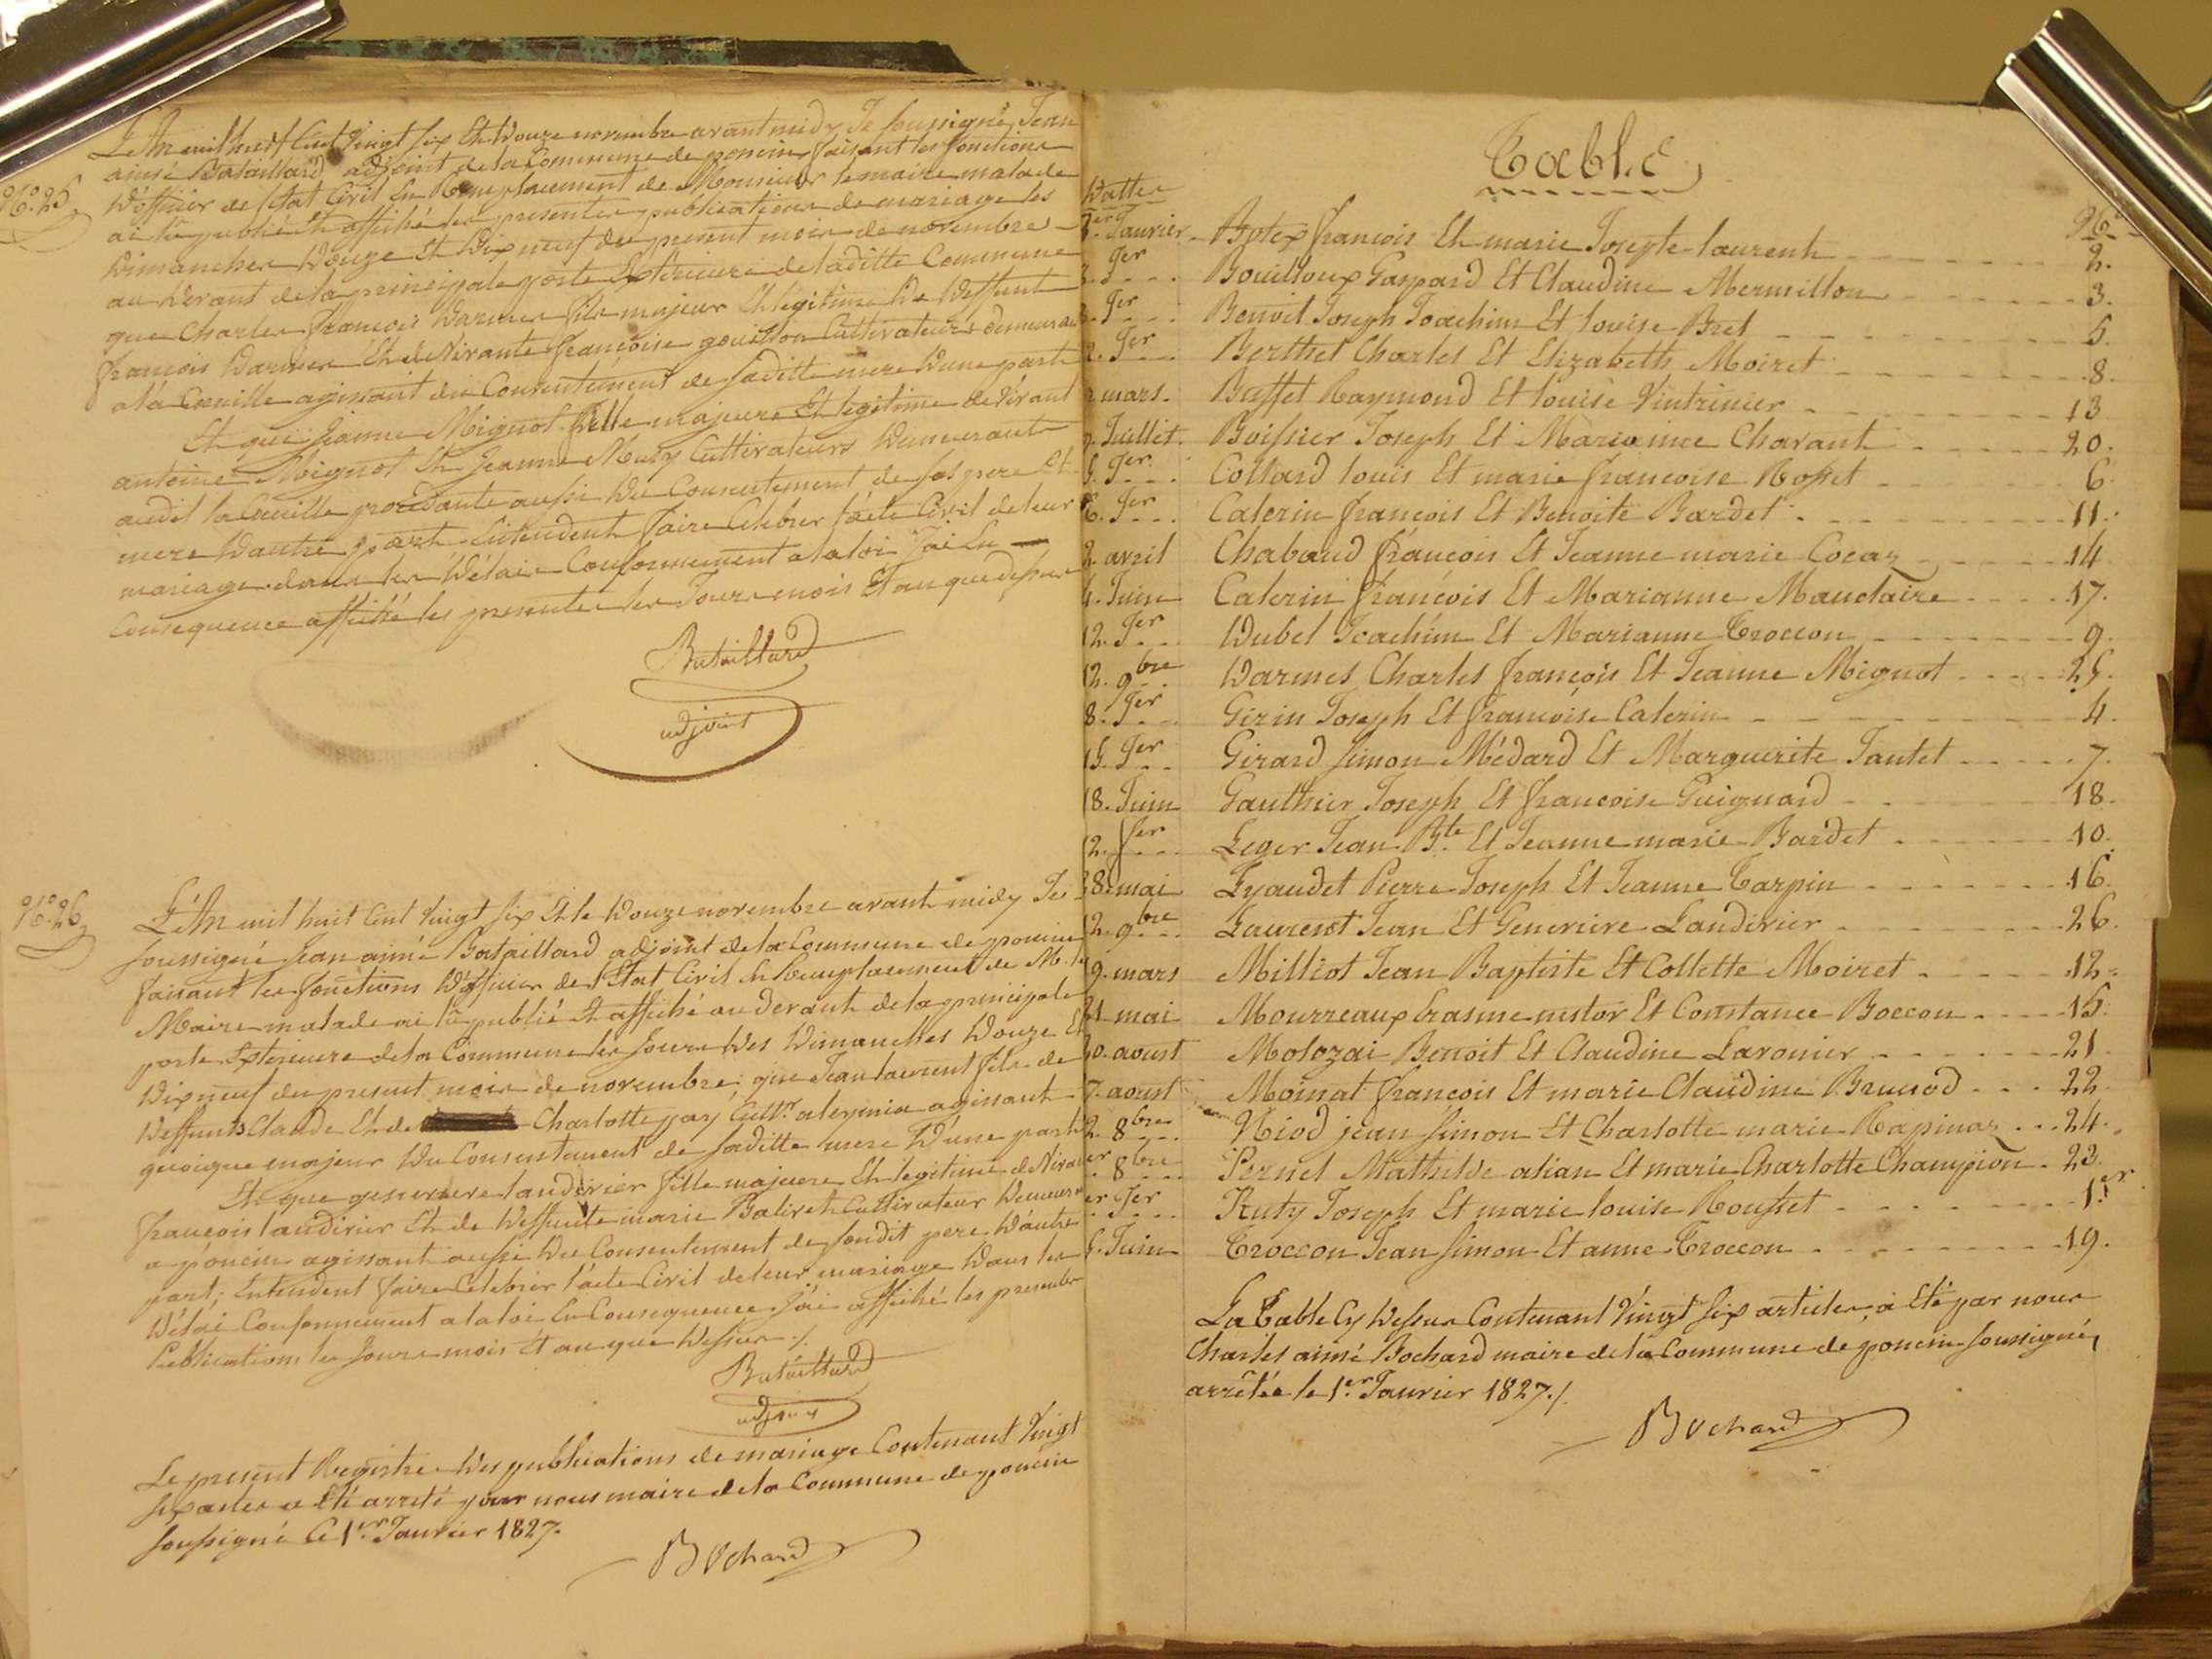 L'An mil huit Cent Vingt Six Et le Douze novembre avant midy Je Soussigné Jean
aimé Bataillard adjoint de la Commune de poncin faisant les fonctions
N.o 25
D'officier de l'Etat Civil En Remplacement de Monsieur le maire malade
ai lu publié Et affiché les presentes publications de mariage les
Dimanches Douze Et Dix neuf du present mois de novembre
au Devant de la principale porte Extérieure de laditte Commune
que Charles François Darmes fils majeur Et légitime De Deffunt
françois Darmes Et de Vivante françoise goution Cultivateurs demeurant
a la Cueille agissant du Consentement de Saditte mere D'une part
Et que Jeanne Mignot fille majeure Et legitime de Vivant
antoine Mignot Et Jeanne Muty Cultivateurs Demeurant
audit la Cueille procédante aussi Du Consentement de Ses pere Et
mere D'autre part Entendent faire Celebrer l'acte Civil de leur
mariage dans les Délais Conformement a la loi J'ai En
Consequence affiché les presentes les Jours mois Et an que dessus
Bataillard
adjoint
N.o 26
L'An mil huit Cent Vingt Six Et le Douze novembre avant midy Je
Soussigné Jean aimé Bataillard adjoint de la Commune de poncin
faisant les fonctions D'officier de l'Etat Civil En Remplacement de M. le
Maire malade ai lu publié Et affiché au devant de la principale
porte Extérieure de la Commune les Jours Des Dimanches Douze Et
Dix neuf du present mois de novembre que Jean laurent fils de
Deffunts Claude Et de Charlotte pary Cult.r a leymia agissant
quoique majeur Du Consentement de Saditte mere D'une part
Et que genevieve landirier fille majeure Et legitime de Vivant
François landirier Et de Deffunte marie Baliret Cultivateur Demeurant
a poncin agissant aussi Du Consentement de Sondit pere D'autre
part; Entendent faire Celebrer l'acte Civil de leur mariage Dans les
Délai Conformement a la loi En Consequence J'ai affiché les presentes
Publications les Jours mois Et an que Dessus ./.
Bataillard
adjoint
Le present Registre Des publications de mariage Contenant Vingt
Six actes a Eté arreté par nous maire de la Commune de poncin
Soussigné Ce 1.er Janvier 1827.
Bochard
Table
Dattes N.os
1.er Janvier Botex françois Et marie Josepte laurent 2.
J.er Bouilloux Gaspard Et Claudine Mermillon 3.
J.er Benoit Joseph Joachim Et louise Bret 5.
J.er Berthet Charles Et Elizabeth Moiret 8.
mars. Buffet Raymond Et louise Vintrinier 13
9. Juillet. Boissier Joseph Et Marianne Charant 20.
J.er Collard louis Et marie françoise Rosset 6
J.er Calerin françois Et Benoite Bardet 11.
2. avril Chabaud françois Et Jeanne marie Cocaz 14.
4. Juin Calerin françois Et Marianne Mauclaire 17.
12. J.er Dubel Joachim Et Marianne Troccon 9.
12. 9bre Darmes Charles françois Et Jeanne Mignot 25.
8. J.er Girin Joseph Et françoise Calerin 4.
15. J.er Girard Simon Médard Et Marguerite Jantet 7.
18. Juin Gauthier Joseph Et françoise Guignard 18.
12. f.er Leger Jean B.te Et Jeanne marie Bardet 10.
28. mai Lyaudet Pierre Joseph Et Jeanne Tarpin 16.
12. 9bre Laurent Jean Et Genevieve Landirier 26.
19. mars Milliot Jean Baptiste Et Collette Moiret 12.
21 mai Mourreaux Erasme nestor Et Constance Boccon 15.
20. aoust Molozai Benoit Et Claudine Laronier 21.
27. aoust Moinat françois Et marie Claudine Brunod 22.
22. 8bre Niod jean Simon Et Charlotte marie Rapinaz 24.
1.er 8bre Pernet Mathilde alian Et marie Charlotte Champion 23.
1.er J.er Ruty Joseph Et marie louise Rousset 1.er
Juin Troccon Jean Simon Et anne Troccon 19.
La Table Cy Dessus Contenant Vingt Six articles, a Eté par nous
Charles aimé Bochard maire de la Commune de poncin Soussigné,
arrêtée le 1.er Janvier 1827./.
Bochard